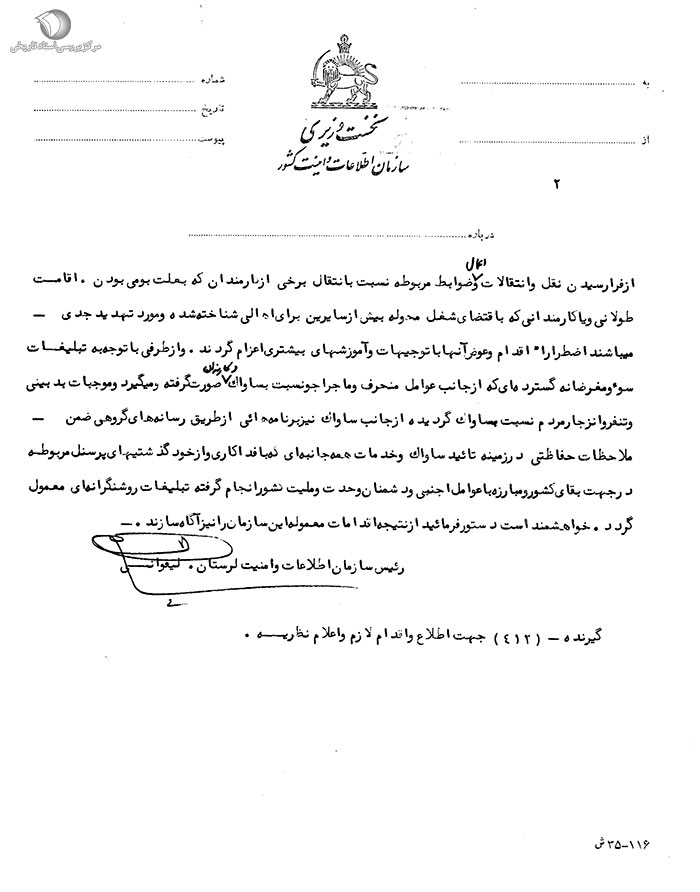 مرکز بررسی اسناد تاریخی
نخست وزیری
سازمان اطلاعات و امنیت کشور
به
از
شماره
تاریخ
پیوست
۲
درباره
ازفرارسیدن نقل وانتقالات و اعمال ضوابط مربوطه نسبت بانتقال برخی ازکارمندان که بعلت بومی بودن . اقامت
طولانی ویاکارمندانی که باقتضای شغل محوله بیش ازسایرین برای اهالی شناخته شده ومورد تهدید جدی –
میباشند اضطرارا" اقدام وعوض آنها با توجیهات وآموزشهای بیشتری اعزام گردند . وازطرفی باتوجه به تبلیغات
سوء ومغرضانه گسترده ای که ازجانب عوامل منحرف وماجراجو نسبت بساواک و کارمندان صورت گرفته ومیگیرد وموجبات بدبینی
وتنفر وانزجار مردم نسبت بساواک گردیده ازجانب ساواک نیز برنامه هائی ازطریق رسانه های گروهی ضمن –
ملاحظات حفاظتی درزمینه تائید ساواک وخدمات همه جانبه ای که بافداکاری وازخود گذشتیهای پرسنل مربوطه
درجهت بقای کشورومبارزه باعوامل اجنبی ودشمنان وحدت وملیت کشورانجام گرفته تبلیغات روشنگرانه ای معمول
گردد . خواهشمند است دستورفرمائید ازنتیجه اقدامات معموله این سازمان رانیزآگاه سازند . –
رئیس سازمان اطلاعات وامنیت لرستان .
گیرنده – (٤١٢) جهت اطلاع واقدام لازم واعلام نظریه .
۱۱۶–۳۵ ش